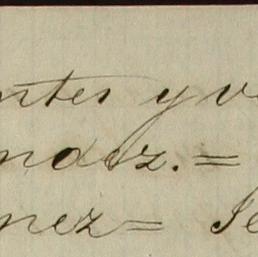 ntes y v
ndez.=
nez= Je